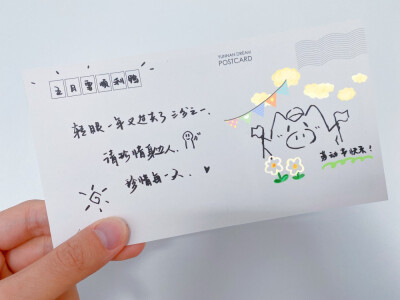 五月要顺利鸭
YUNNAN DREAM
POSTCARD
转眼一年又过去了三分之一.
请珍惜身边人.
珍惜每一天.
劳动节快乐!